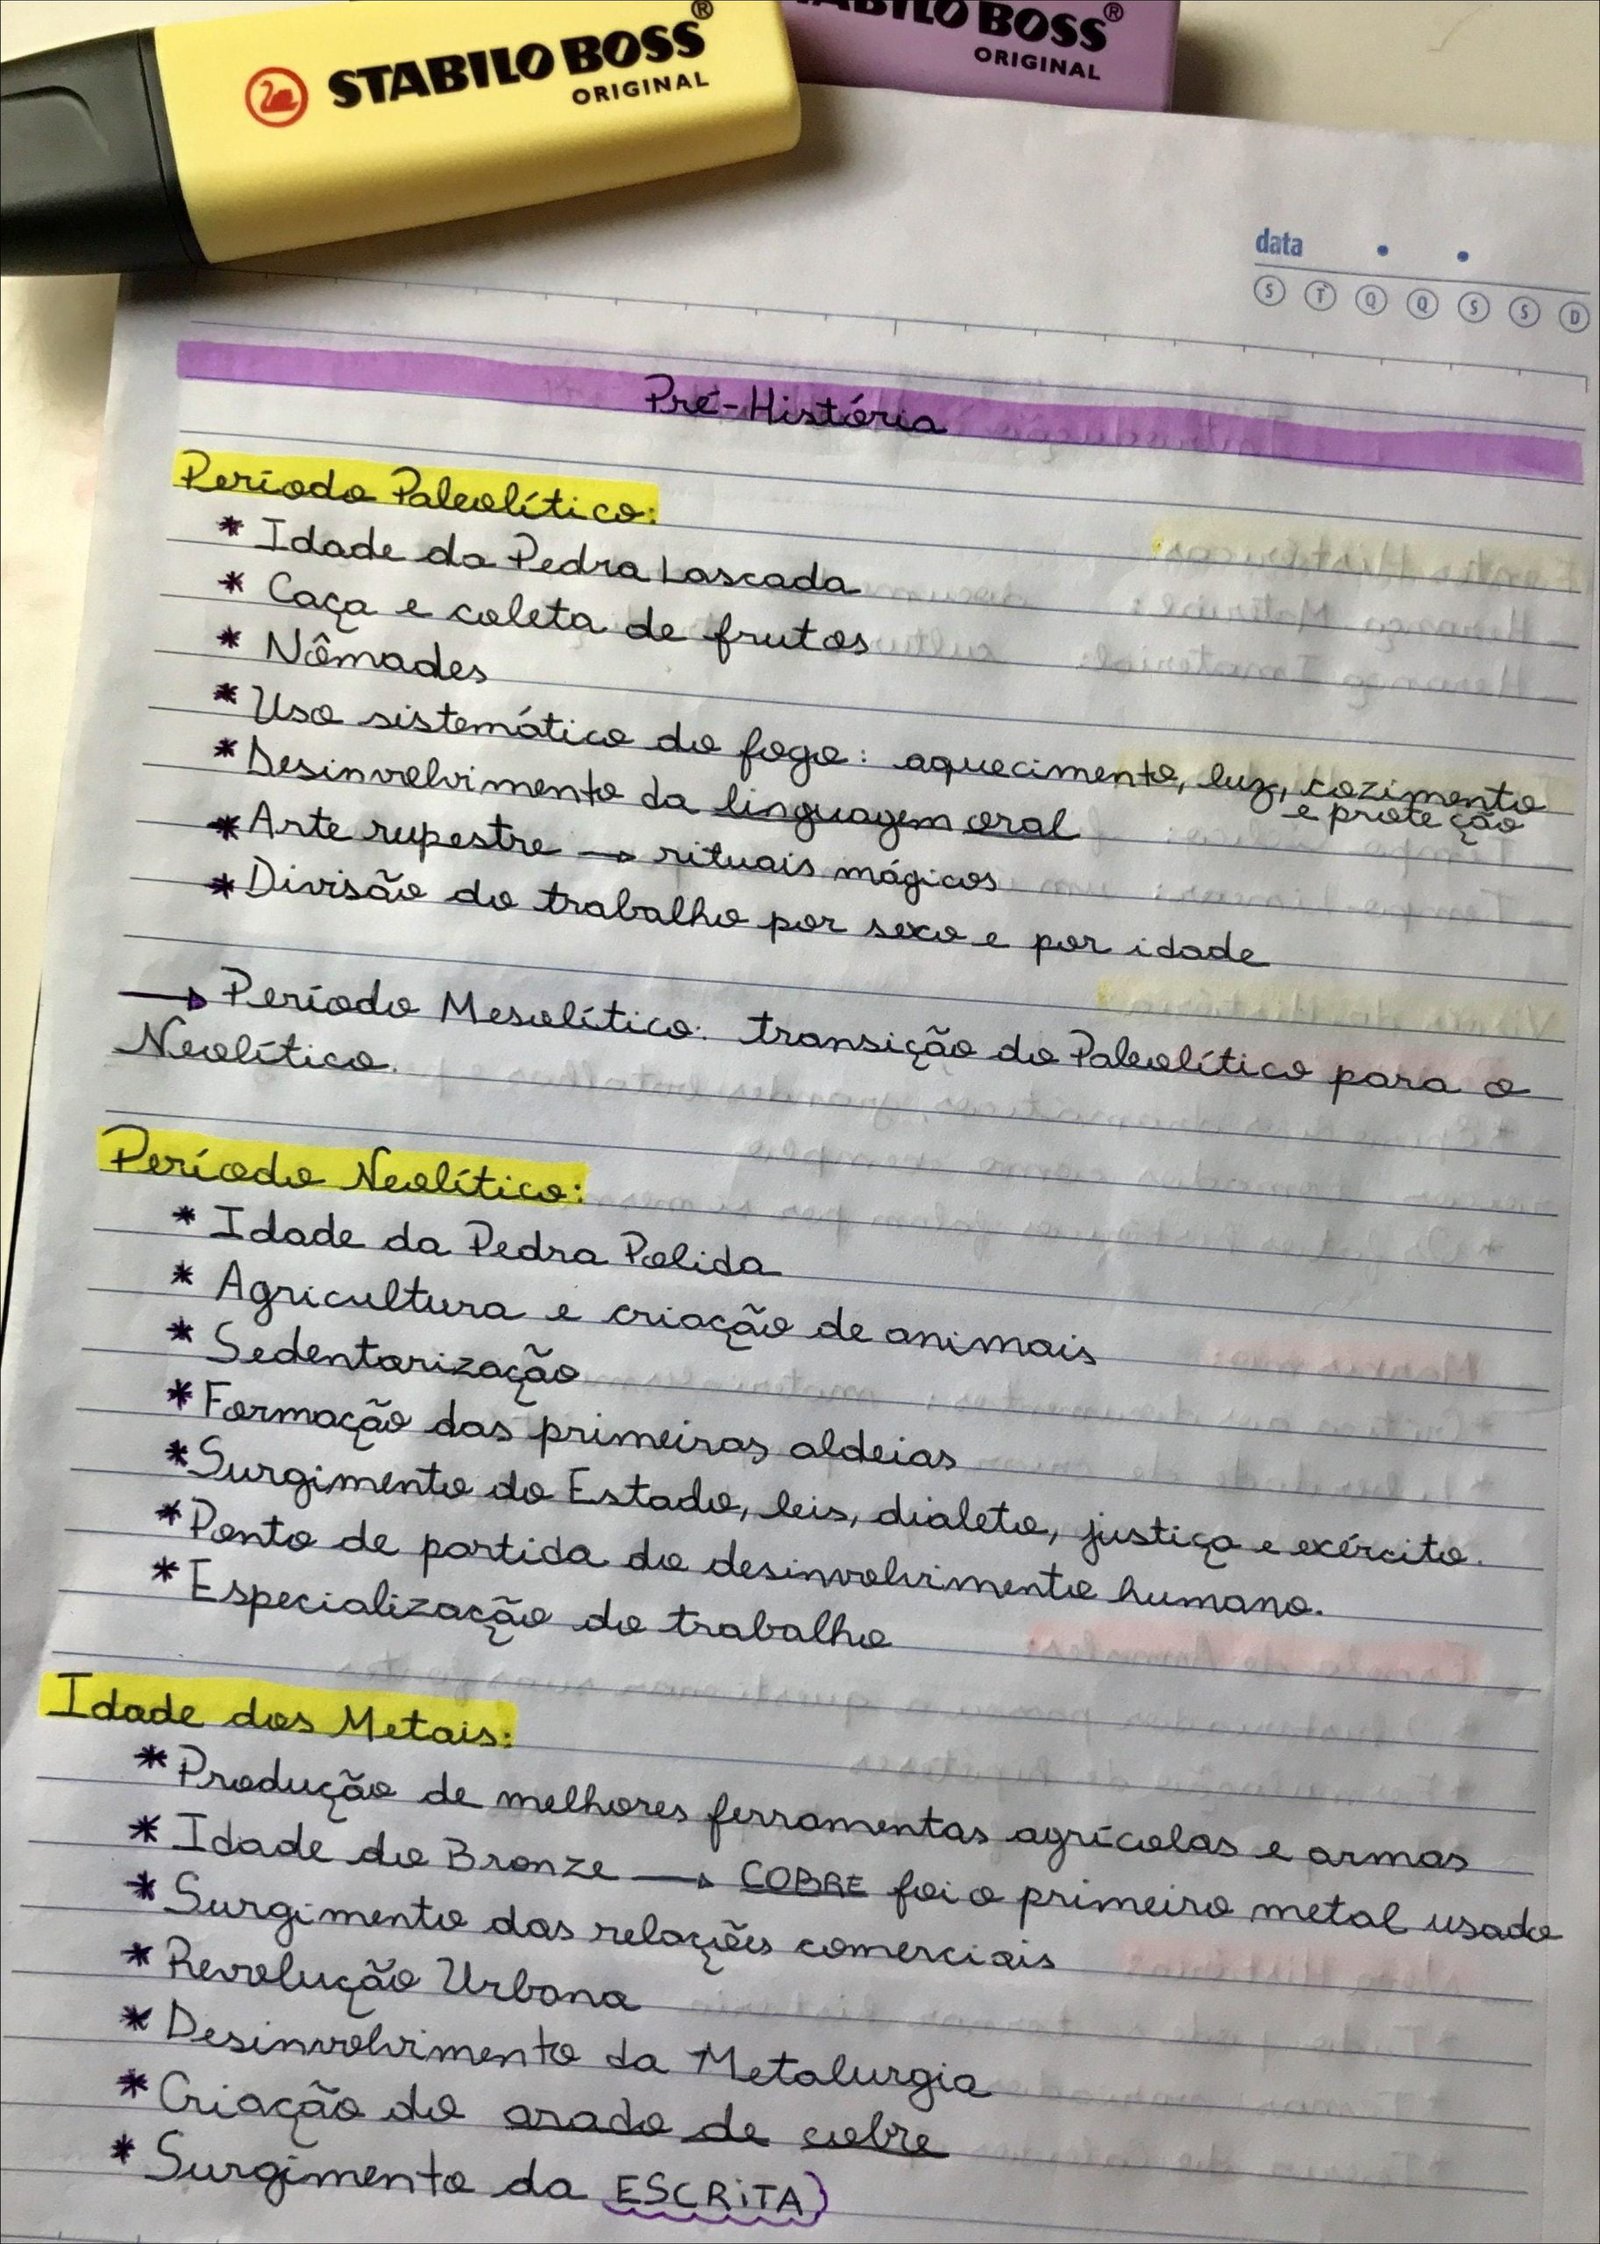 STABILO BOSS®
ORIGINAL
STABILO BOSS®
ORIGINAL
data
S T Q Q S S D
Pré-História
Período Paleolítico:
* Idade da Pedra Lascada
* Caça e coleta de frutos
* Nômades
* Uso sistemático do fogo: aquecimento, luz, cozimento
e proteção
* Desinvolvimento da linguagem oral
* Arte rupestre → rituais mágicos
* Divisão do trabalho por sexo e por idade
→ Período Mesolítico: transição do Paleolítico para o
Neolítico.
Período Neolítico:
* Idade da Pedra Polida
* Agricultura e criação de animais
* Sedentarização
* Formação das primeiras aldeias
* Surgimento do Estado, leis, dialeto, justiça e exército.
* Ponto de partida do desinvolvimento humano.
* Especialização do trabalho
Idade dos Metais:
* Produção de melhores ferramentas agrícolas e armas
* Idade do Bronze → COBRE foi o primeiro metal usado
* Surgimento das relações comerciais
* Revolução Urbana
* Desinvolvimento da Metalurgia
* Criação do arado de cobre
* Surgimento da ESCRITA